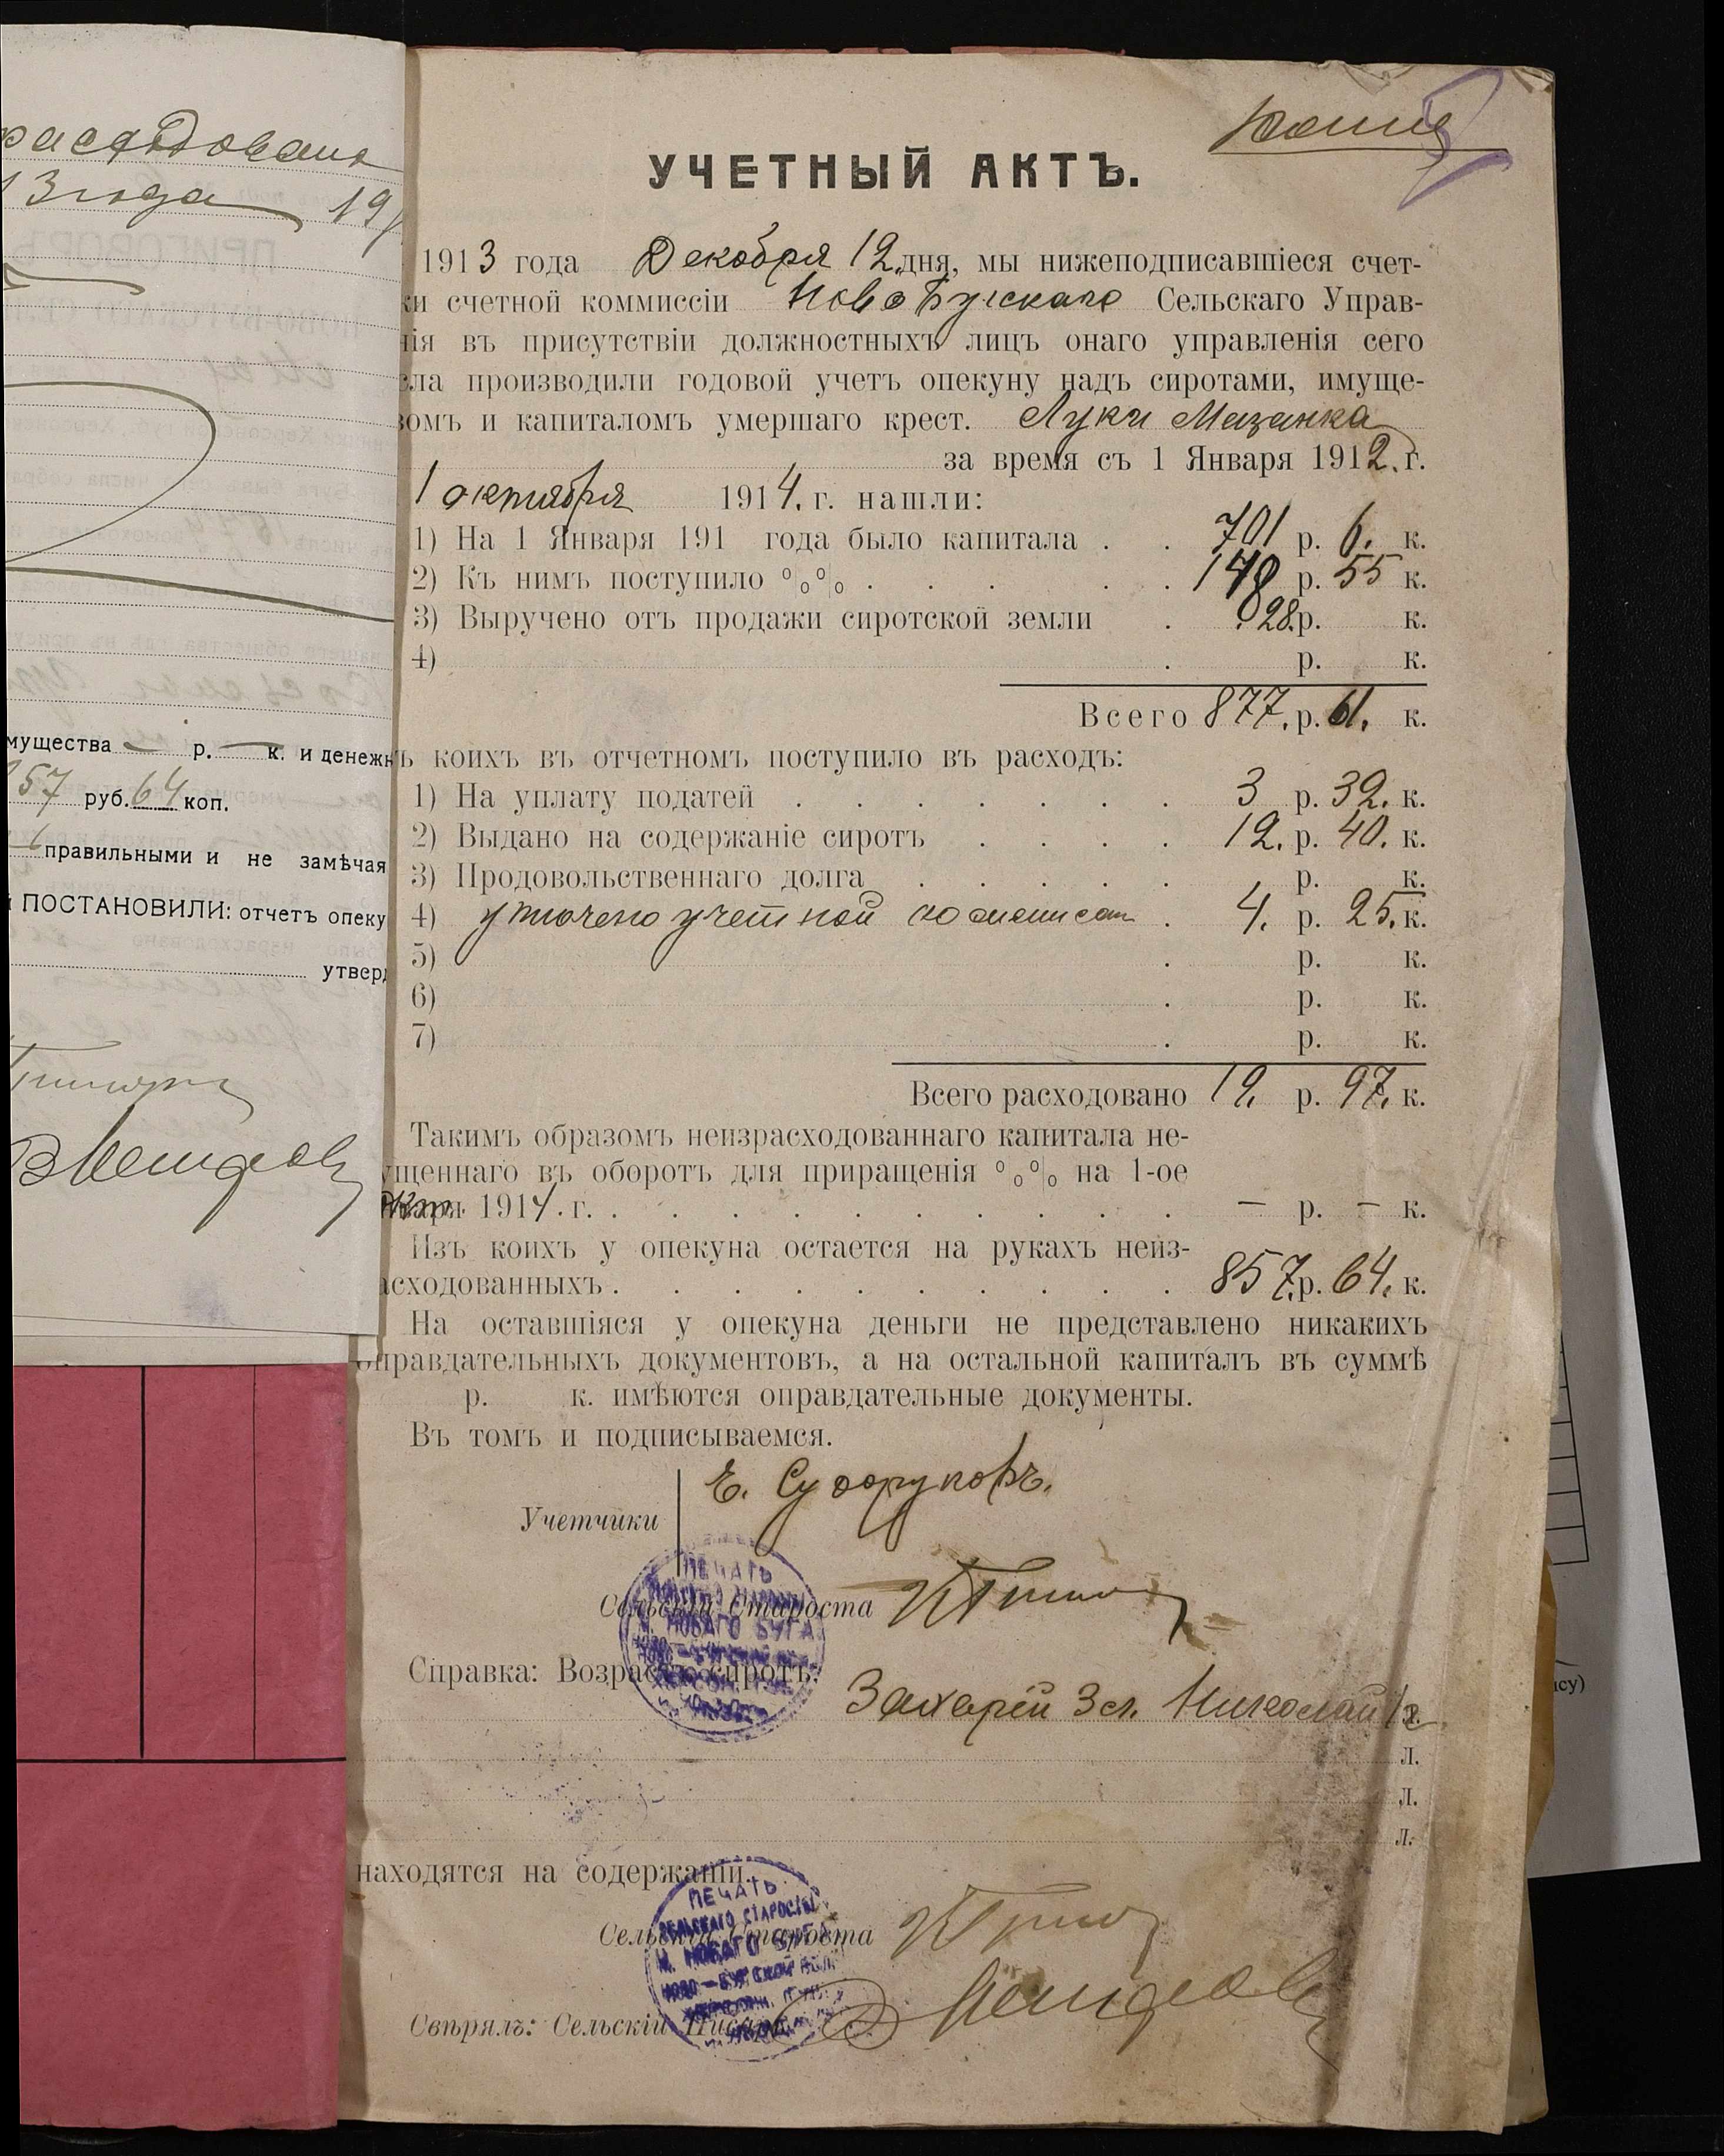 13 года 191
мущества — р. — к. и денежн
57 руб. 64 коп.
правильными и не замѣчая
ПОСТАНОВИЛИ: отчетъ опеку
утверд
Копия
УЧЕТНЫЙ АКТЪ.
1913 года Декабря 12 дня, мы нижеподписавшіеся счет-
ки счетной коммиссіи Новобугскаго Сельскаго Управ-
нія въ присутствіи должностныхъ лицъ онаго управленія сего
сла производили годовой учетъ опекуну надъ сиротами, имуще-
вомъ и капиталомъ умершаго крест. Луки Мазанка
за время съ 1 Января 1912. г.
1 октября 1914. г. нашли:
1) На 1 Января 191 года было капитала . . 701 р. 6. к.
2) Къ нимъ поступило %% . . . . . 148 р. 55 к.
3) Выручено отъ продажи сиротской земли . 28. р. к.
4) . р. к.
Всего 877. р. 61. к.
ъ коихъ въ отчетномъ поступило въ расходъ:
1) На уплату податей . . . . . . . 3 р. 32. к.
2) Выдано на содержаніе сиротъ . . . . 12. р. 40. к.
3) Продовольственнаго долга . . . . . р. к.
4) учетной . 4. р. 25. к.
5) . р. к.
6) . р. к.
7) . р. к.
Всего расходовано 19. р. 97. к.
Такимъ образомъ неизрасходованнаго капитала не-
ущеннаго въ оборотъ для приращенія %% на 1-ое
1914. г. . . . . . . . . . . — р. — к.
Изъ коихъ у опекуна остается на рукахъ неиз-
асходованныхъ . . . . . . . . . . 857. р. 64. к.
На оставшіяся у опекуна деньги не представлено никакихъ
оправдательныхъ документовъ, а на остальной капиталъ въ суммѣ
р. к. имѣются оправдательные документы.
Въ томъ и подписываемся.
Учетчики
Е. Сухоруковъ.
ПЕЧАТЬ
Сельскій Староста
НОВАГО БУГА
Справка: Возрастъ сиротъ:
Захарій 3 л. Николай 1 г.
л.
л.
л.
находятся на содержаніи.
ПЕЧАТЬ
СЕЛЬСКАГО СТАРОСТЫ
Сельскій Староста
М. НОВАГО БУГА
НОВО-БУГСКОЙ ВОЛ.
Свѣрялъ: Сельскій Писарь